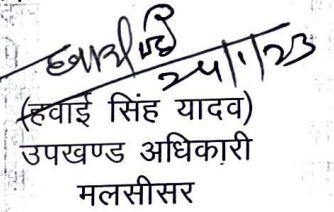 24/1/23
(हवाई सिंह यादव)
उपखण्ड अधिकारी
मलसीसर